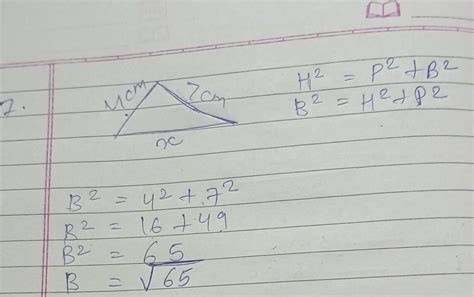 7.
4cm
7cm
x
H² = P² + B²
B² = H² + P²
B² = 4² + 7²
B² = 16 + 49
B² = 65
B = √65